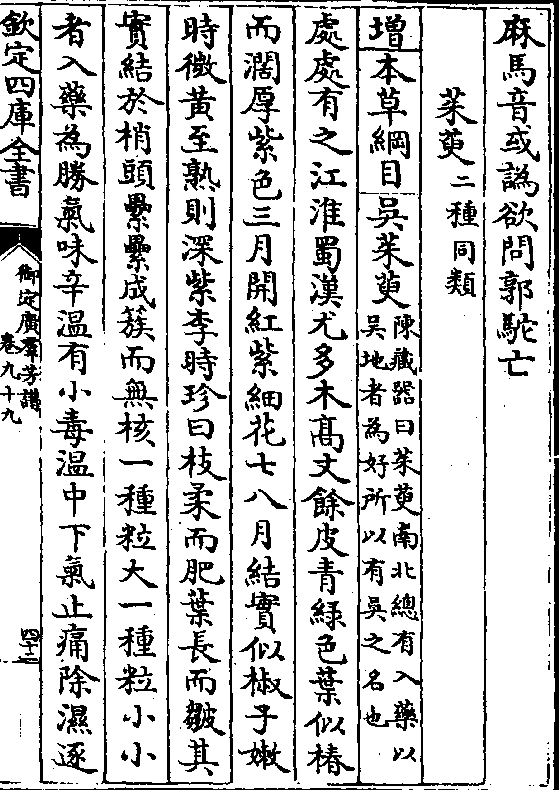 麻馬音或譌欲問郭駝亡
茱萸二種同類
增本草綱目吳茱萸陳藏器曰茱萸南北總有入藥以
吳地者為好所以有吳之名也
處處有之江淮蜀漢尤多木髙丈餘皮青緑色葉似椿
而濶厚紫色三月開紅紫細花七八月結實似椒子嫩
時微黃至熟則深紫李時珍曰枝柔而肥葉長而皺其
實結於梢頭纍纍成簇而無核一種粒大一種粒小小
者入藥為勝氣味辛温有小毒温中下氣止痛除濕逐
欽定四庫全書
御定廣羣芳譜
卷九十九
四十二